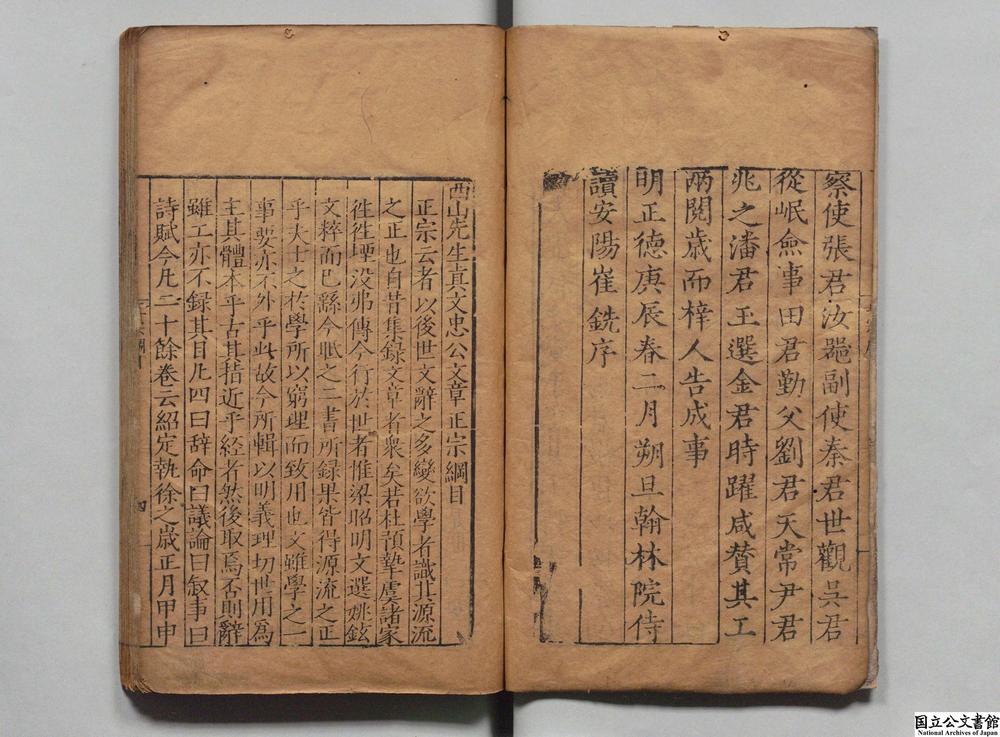 察使張君汝礪副使秦君世觀吳君
從岷僉事田君勤父劉君天常尹君
兆之潘君玉選金君時躍咸賛其工
兩閱歲而梓人告成事
明正德庚辰春二月朔旦翰林院侍
讀安陽崔銑序
西山先生真文忠公文章正宗綱目
正宗云者以後世文辭之多變欲學者識其源流
之正也自昔集録文章者衆矣若杜預摯虞諸家
徃徃堙没弗傳今行於世者惟梁昭明文選姚鉉
文粹而已繇今眂之二書所録果皆得源流之正
乎夫士之於學所以窮理而致用也文雖學之一
事要亦不外乎此故今所輯以明義理切世用爲
主其體本乎古其指近乎經者然後取焉否則辭
雖工亦不録其目凡四曰辞命曰議論曰叙事曰
詩賦今凡二十餘卷云紹定執徐之歳正月甲申
四
国立公文書館
National Archives of Japan